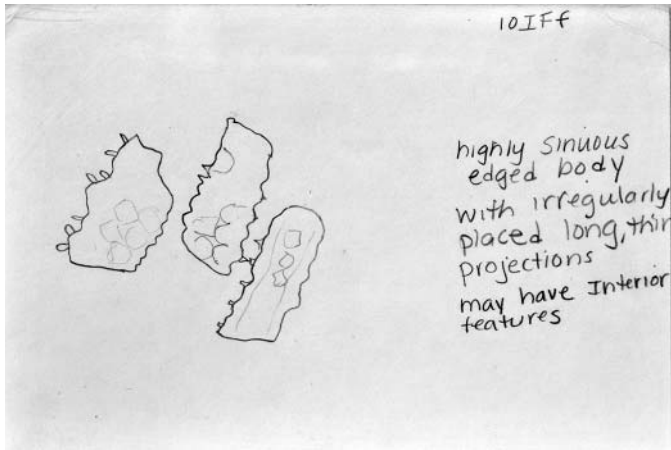 10IFf
highly sinuous
edged body
with irregularly
placed long, thin
projections
may have Interior
features